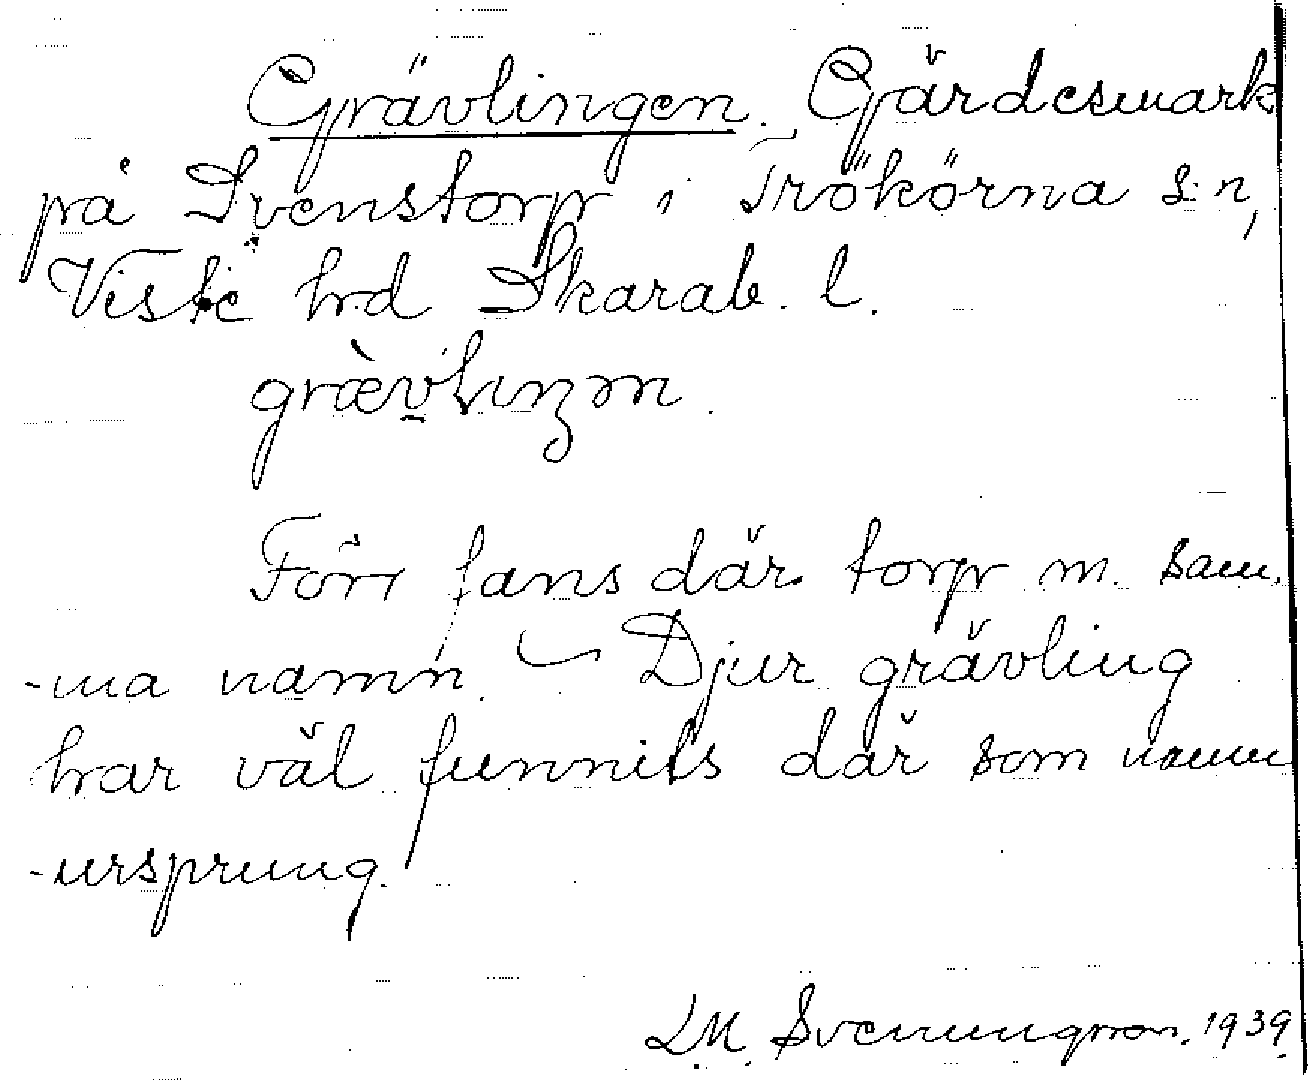 Grävlingen. Gärdesmark
på Svenstorp i Trökörna s:n,
Viste hd Skarab. l.
græ̀vlıŋən.
Förr fans där torp m. sam-
-ma namn. Djur grävling
har väl funnits där som namn
-ursprung.
LM. Svenungsson. 1939.